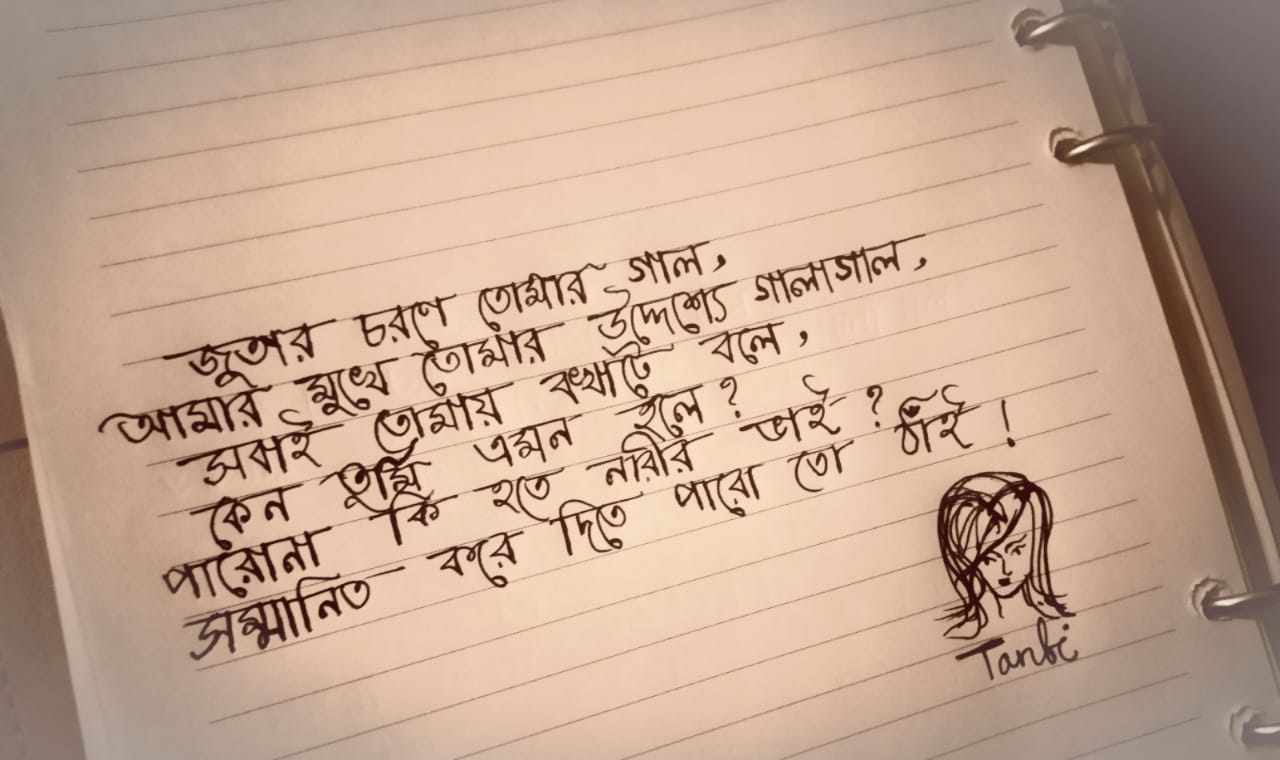 জুতার চরণে তোমার গাল,
আমার মুখে তোমার উদ্দেশ্যে গালাগাল,
সবাই তোমায় বখাটে বলে,
কেন তুমি এমন হলে ?
পারোনা কি হতে নারীর ভাই ?
সম্মানিত করে দিতে পারো তো ঠাঁই !
Tanbi